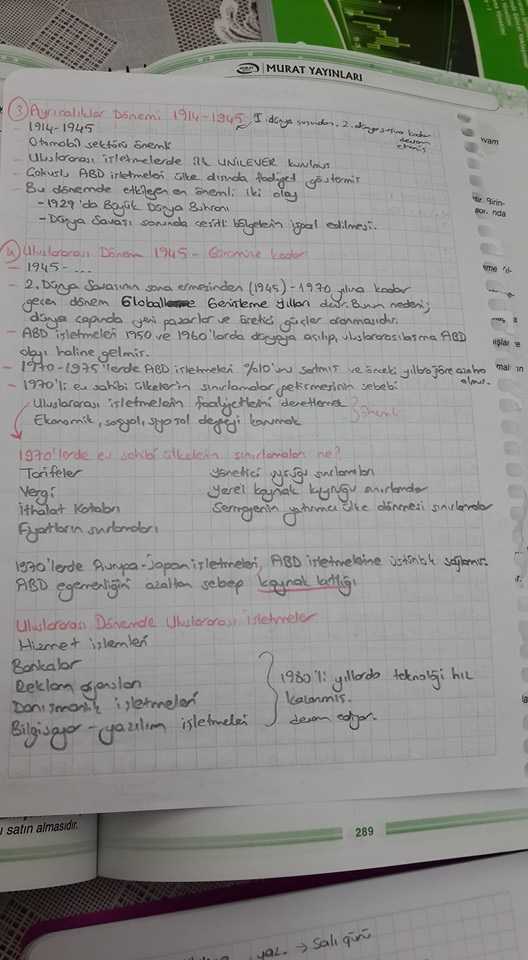 MURAT YAYINLARI
③ Ayrıcalıklar Dönemi 1914-1945 → I. dünya savaşından. 2. dünya savaşına kadar
devam etmiş
- 1914-1945
Otomobil sektörü önemli
- Uluslararası işletmelerde ilk UNILEVER kurulmuş
- Çokuluslu ABD işletmeleri ülke dışında faaliyet göstermiş
- Bu dönemde etkileyen en önemli iki olay
- 1929'da Büyük Dünya Buhranı
- Dünya Savaşı sonunda çeşitli bölgelerin işgal edilmesi.
④ Uluslararası Dönem 1945 - Günümüze kadar
- 1945 - ...
- 2. Dünya Savaşının sona ermesinden (1945) - 1970 yılına kadar
geçen dönem Global Genişleme Yılları dır. Bunun nedeni;
dünya çapında yeni pazarlar ve üretici güçler aranmasıdır.
- ABD işletmeleri 1950 ve 1960'larda dünyaya açılıp, uluslararasılaşma ABD
olayı haline gelmiş.
- 1970-1975'lerde ABD işletmeleri %10'nu satmış ve önceki yıllara göre
olmuş.
- 1970'li ev sahibi ülkelerin sınırlamalar getirmesinin sebebi
Uluslararası işletmelerin faaliyetlerini denetlemek
Ekonomik, sosyal, siyasal desteği kazanmak
önemli
1970'lerde ev sahibi ülkelerin sınırlamaları ne?
Tarifeler
Yönetici uyruğu sınırlamaları
Vergi
Yerel kaynak sınırlamalar
İthalat Kotaları
Sermayenin yatırımcı ülke dönmesi sınırlamalar
Fiyatların sınırlamaları
1970'lerde Avrupa-Japan işletmeleri, ABD işletmelerine üstünlük sağlamış.
ABD egemenliğini azaltan sebep kaynak kıtlığı
Uluslararası Dönemde Uluslararası işletmeler
Hizmet işlemleri
Bankalar
Reklam ajansları
Danışmanlık işletmeleri
Bilgisayar - yazılım işletmeleri
1980'li yıllarda teknoloji hız
kazanmış.
devam ediyor.
ı satın almasıdır.
289
yaz. → Salı günü